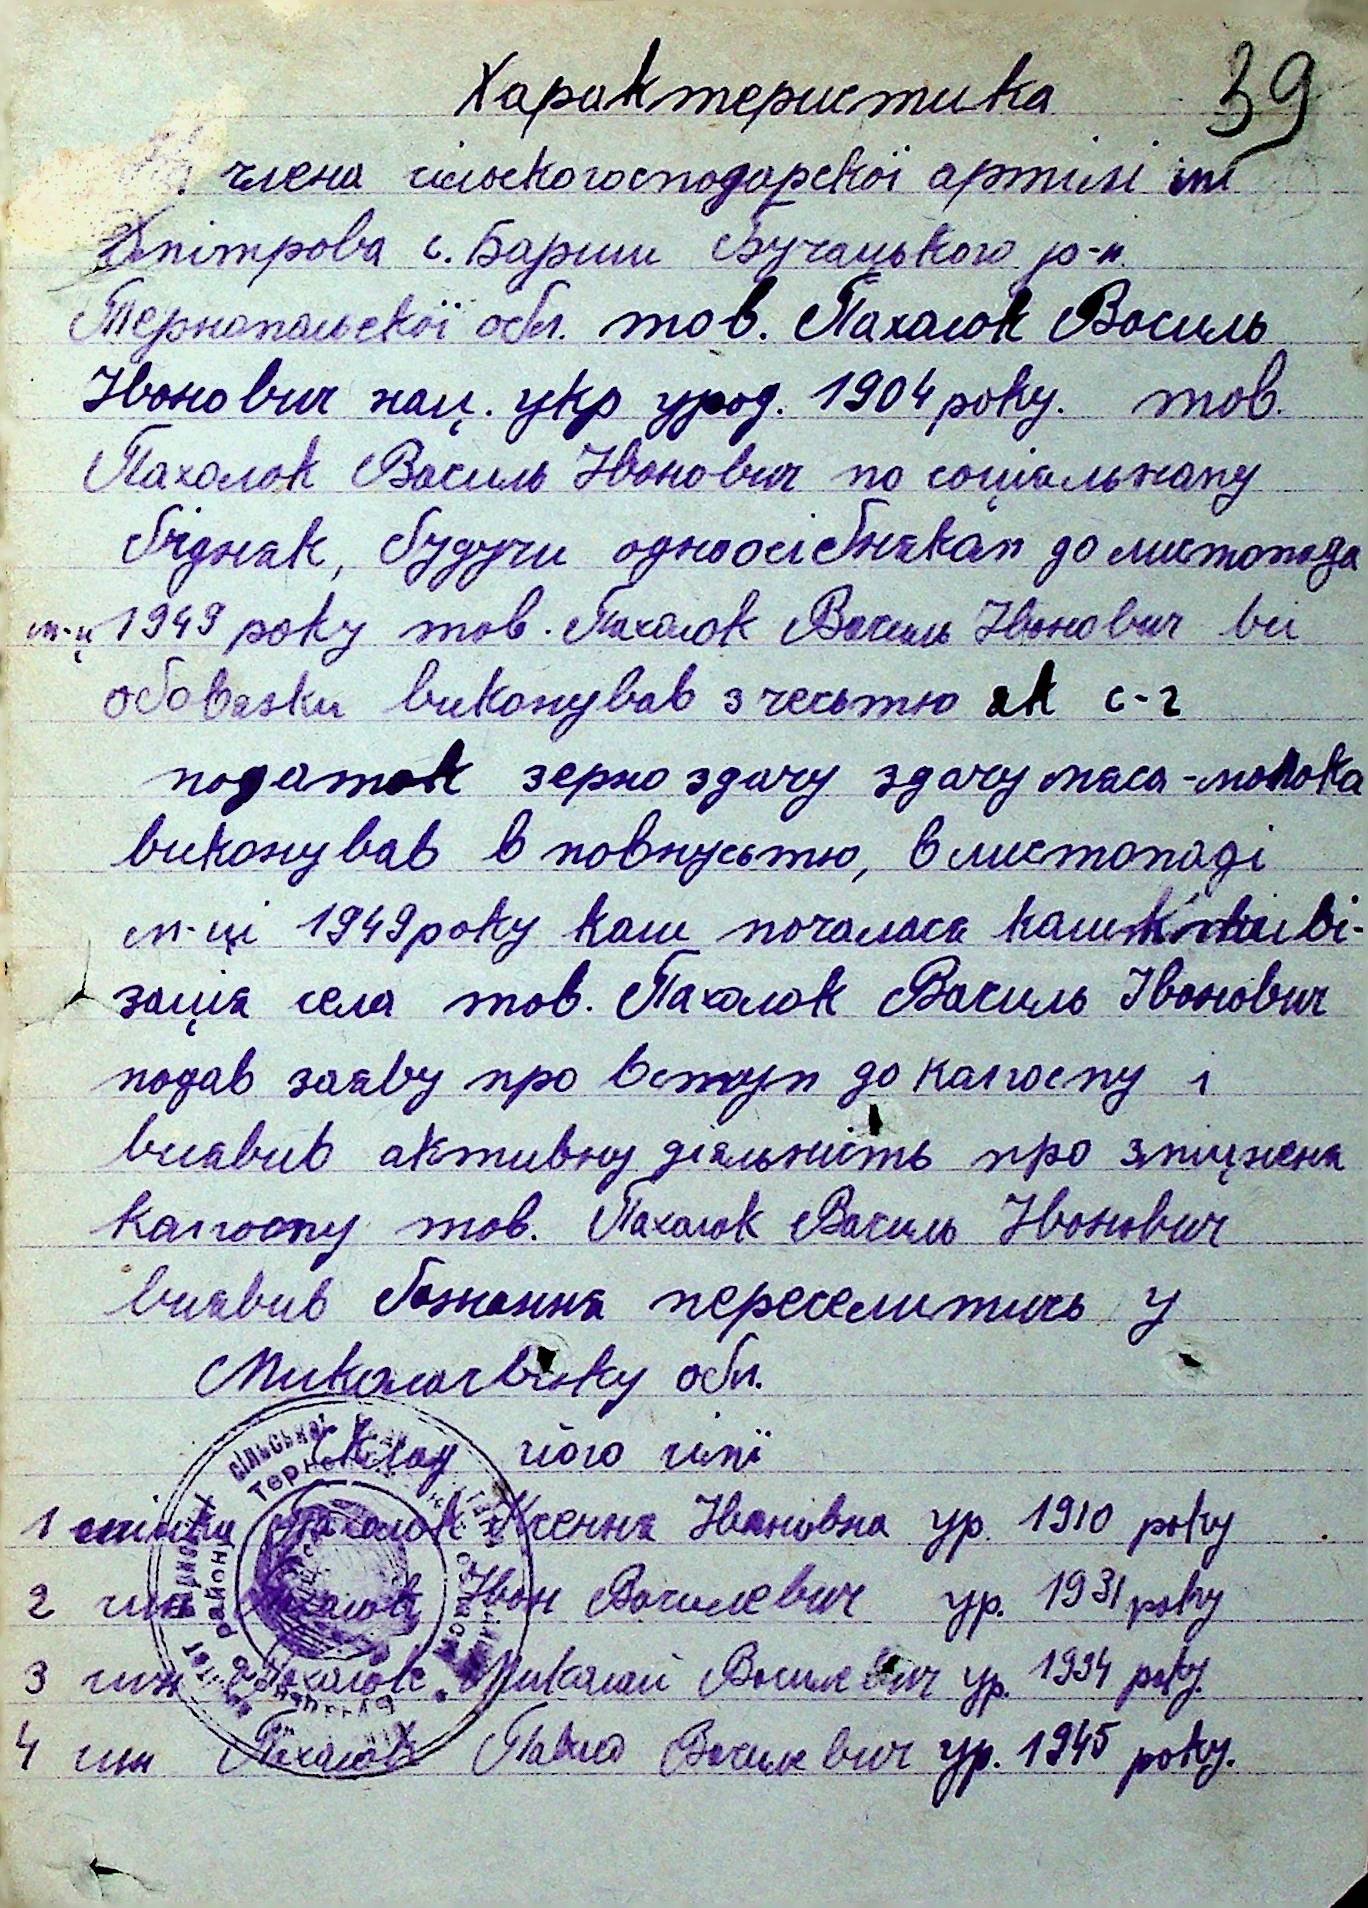 Характеристика 39
На члена сільскогосподарскої артілі ім
Дмітрова с. Бариш Бучацького р-н.
Тернопольскої обл. тов. Пахолок Василь
Іванович нац. укр урод. 1904 року. тов.
Пахолок Василь Іванович по соціальнаму
бідняк, будучи одноосібнякам до листопада
м-ц 1949 року тов. Пахолок Василь Іванович всі
обовязки виконував з честьтю як с-г
податок зерно здачу здачу мяса-молока
виконував в повнустью, в листопаді
м-ці 1949 року коли почалася
зація села тов. Пахолок Василь Іванович
подав заяву про вступ до калгоспу і
виявив активну діяльність про зміцненя
калгоспу тов. Пахолок Василь Іванович
виявив бажання переселитичь у
Миколаівську обл.
Склад його сімї
1 жінка Пахолок Ксенія Івановна ур. 1910 року
2 син Пахолок Іван Василевич ур. 1931 року
3 син Пахолок Миколай Василевич ур. 1934 року.
4 син Пахолок Павло Василевич ур. 1945 року.
сільської
Терно
району